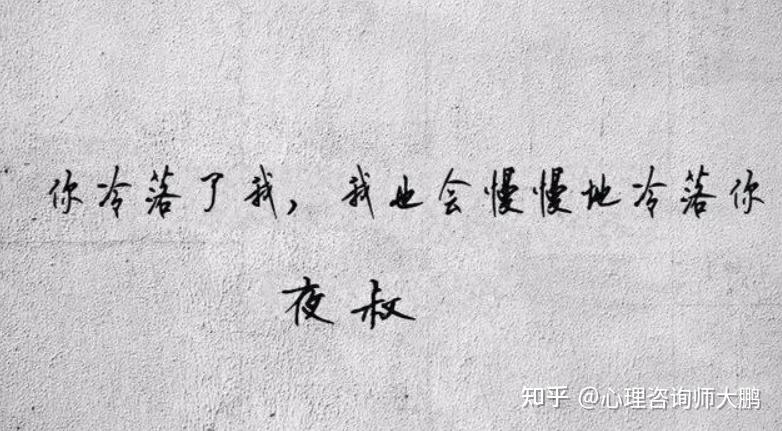 你冷落了我，我也会慢慢地冷落你
夜叔
知乎 @心理咨询师大鹏